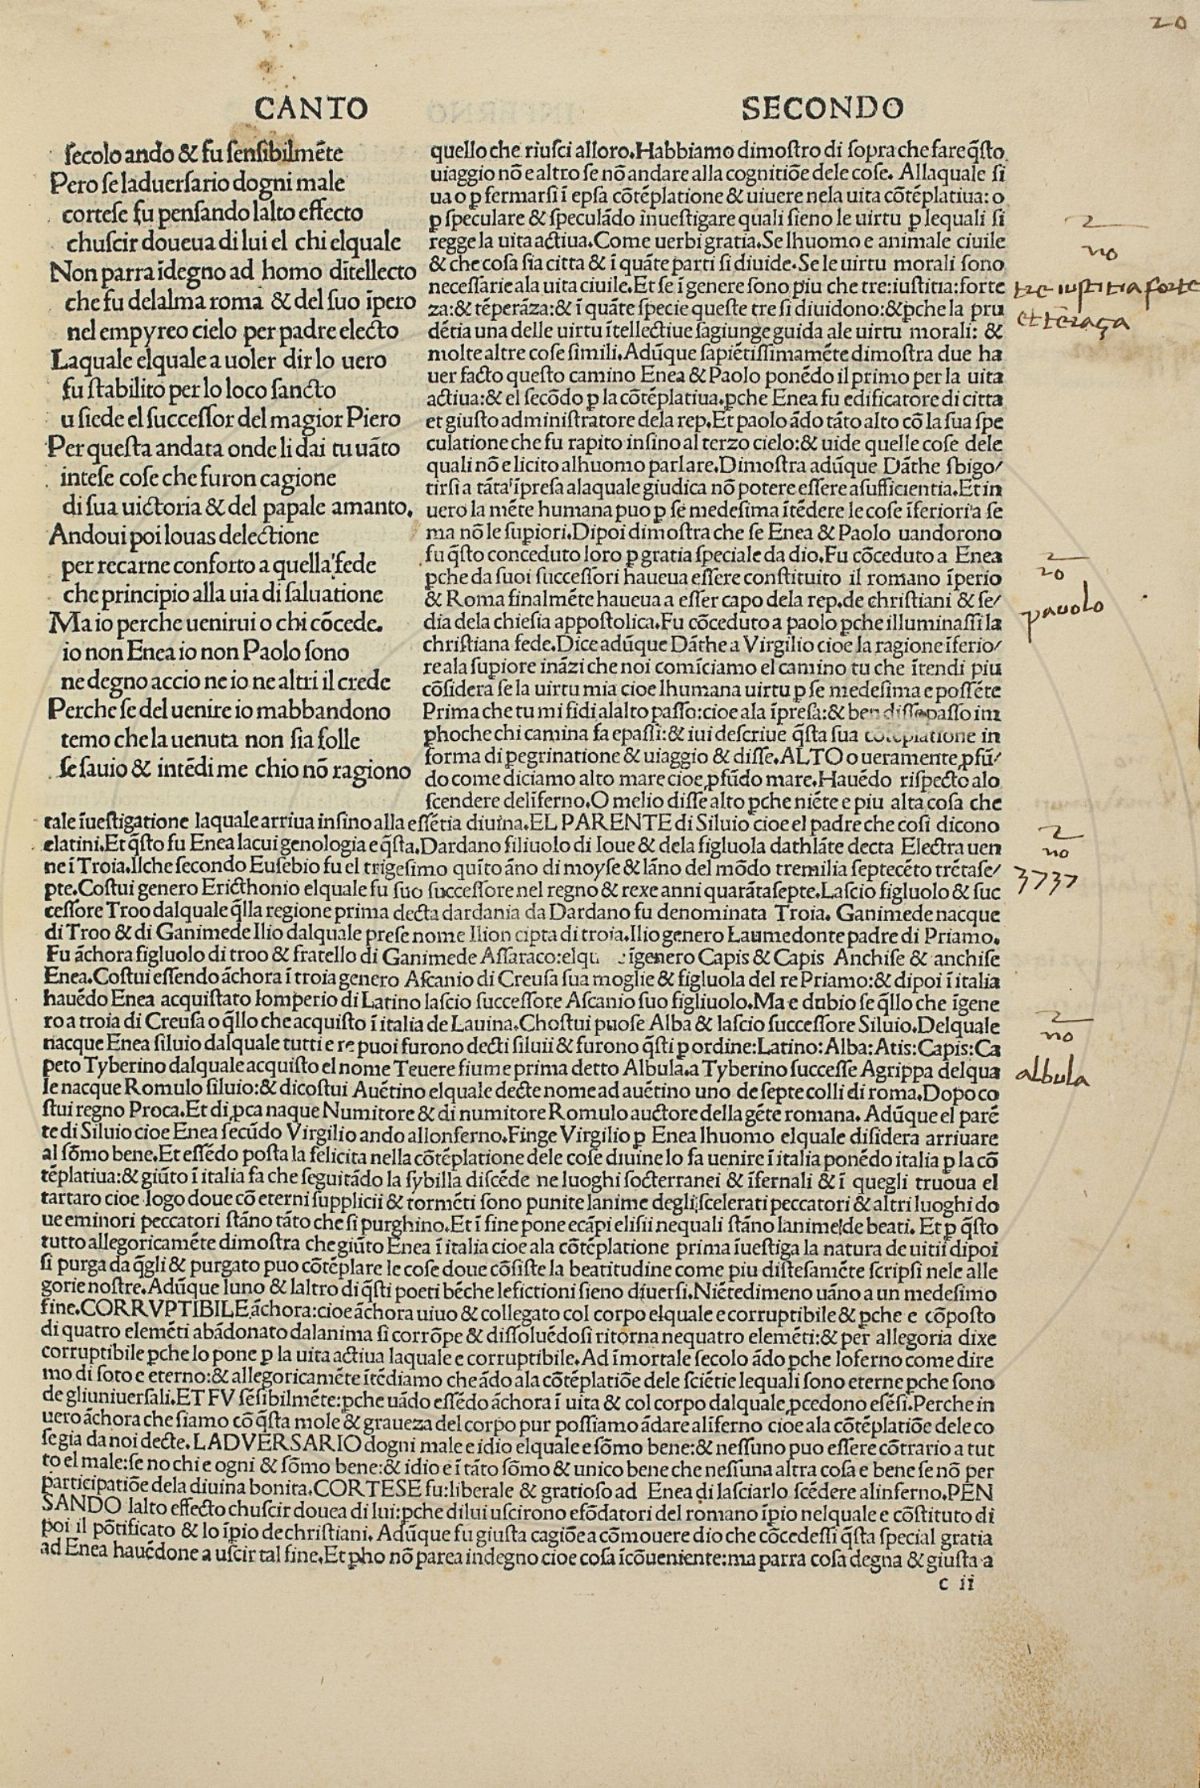 20
CANTO SECONDO
secolo ando & fu sensibilmēte
Pero se laduersario dogni male
cortese fu pensando lalto effecto
chuscir doueua di lui el chi elquale
Non parra īdegno ad homo dītellecto
che fu delalma roma & del suo īpero
nel empyreo cielo per padre electo
Laquale elquale a uoler dir lo uero
fu stabilito per lo loco sancto
u siede el successor del magior Piero
Per questa andata onde li dai tu uāto
intese cose che furon cagione
di sua uictoria & del papale amanto.
Andoui poi louas delectione
per recarne conforto a quella fede
che principio alla uia di saluatione
Ma io perche uenirui o chi cōcede.
io non Enea io non Paolo sono
ne degno accio ne io ne altri il crede
Perche se del uenire io mabbandono
temo che la uenuta non sia folle
se sauio & intēdi me chio nō ragiono
quello che riusci alloro. Habbiamo dimostro di sopra che fare q̄sto
uiaggio nō e altro se nō andare alla cognitiōe dele cose. Allaquale si
ua o ꝑ fermarsi ī epsa cōtēplatione & uiuere nela uita cōtēplatiua: o
ꝑ speculare & speculādo inuestigare quali sieno le uirtu ꝑ lequali si
regge la uita actiua. Come uerbi gratia. Se lhuomo e animale ciuile
& che cosa sia citta & ī quāte parti si diuide. Se le uirtu morali sono
necessarie ala uita ciuile. Et se ī genere sono piu che tre: iustitia: forte
za: & tēperāza: & ī quāte specie queste tre si diuidono: & ꝑche la pru
dētia una delle uirtu ītellectiue sagiunge guida ale uirtu morali: &
molte altre cose simili. Adūque sapiētissimamēte dimostra due ha
uer facto questo camino Enea & Paolo ponēdo il primo per la uita
actiua: & el secōdo ꝑ la cōtēplatiua. ꝑche Enea fu edificatore di citta
et giusto administratore dela rep. Et paolo ādo tāto alto cō la sua spe
culatione che fu rapito insino al terzo cielo: & uide quelle cose dele
quali nō e licito alhuomo parlare. Dimostra adūque Dāthe sbigo/
tirsi a tāta īpresa alaquale giudica nō potere essere asufficientia. Et in
uero la mēte humana puo ꝑ se medesima ītēdere le cose īferiori a se
ma nō le supiori. Dipoi dimostra che se Enea & Paolo uandorono
fu q̄sto conceduto loro ꝑ gratia speciale da dio. Fu cōceduto a Enea
ꝑche da suoi successori haueua essere constituito il romano īperio
& Roma finalmēte haueua a esser capo dela rep. de christiani & se/
dia dela chiesia appostolica. Fu cōceduto a paolo ꝑche illuminassi la
christiana fede. Dice adūque Dāthe a Virgilio cioe la ragione īferio/
re ala supiore ināzi che noi comīciamo el camino tu che ītendi piu
cōsidera se la uirtu mia cioe lhumana uirtu ꝑ se medesima e possēte
Prima che tu mi fidi alalto passo: cioe ala īpresa: & ben disse passo im
ꝑhoche chi camina fa epassi: & iui descriue q̄sta sua cōtēplatione in
forma di pegrinatione & uiaggio & disse. ALTO o ueramente ꝓfū/
do come diciamo alto mare cioe ꝓfūdo mare. Hauēdo rispecto alo
scendere deliferno. O melio disse alto ꝑche niēte e piu alta cosa che
tale īuestigatione laquale arriua insino alla essētia diuina. EL PARENTE di Siluio cioe el padre che cosi dicono
elatini. Et q̄sto fu Enea lacui genologia e q̄sta. Dardano filiuolo di Ioue & dela figluola dathlāte decta Electra uen
ne ī Troia. Ilche secondo Eusebio fu el trigesimo quīto āno di moyse & lāno del mōdo tremilia septecēto trētase/
pte. Costui genero Ericthonio elquale fu suo successore nel regno & rexe anni quarātasepte. Lascio figluolo & suc
cessore Troo dalquale q̄lla regione prima decta dardania da Dardano fu denominata Troia. Ganimede nacque
di Troo & di Ganimede Ilio dalquale prese nome Ilion cipta di troia. Ilio genero Laumedonte padre di Priamo.
Fu āchora figluolo di troo & fratello di Ganimede Assaraco: elqu e īgenero Capis & Capis Anchise & anchise
Enea. Costui essendo āchora ī troia genero Ascanio di Creusa sua moglie & figluola del re Priamo: & dipoi ī italia
hauēdo Enea acquistato lomperio di Latino lascio successore Ascanio suo figliuolo. Ma e dubio se q̄llo che īgene
ro a troia di Creusa o q̄llo che acquisto ī italia de Lauina. Chostui puose Alba & lascio successore Siluio. Delquale
nacque Enea siluio dalquale tutti e re puoi furono decti siluii & furono q̄sti ꝑ ordine: Latino: Alba: Atis: Capis: Ca
peto Tyberino dalquale acquisto el nome Teuere fiume prima detto Albula. a Tyberino successe Agrippa delqua
le nacque Romulo siluio: & dicostui Auētino elquale decte nome ad auētino uno de septe colli di roma. Dopo co
stui regno Proca. Et di ꝓca naque Numitore & di numitore Romulo auctore della gēte romana. Adūque el parē
te di Siluio cioe Enea secūdo Virgilio ando allonferno. Finge Virgilio ꝑ Enea lhuomo elquale disidera arriuare
al sōmo bene. Et essēdo posta la felicita nella cōtēplatione dele cose diuine lo fa uenire ī italia ponēdo italia ꝑ la cō
tēplatiua: & giūto ī italia fa che seguitādo la sybilla discēde ne luoghi socterranei & īfernali & ī quegli truoua el
tartaro cioe logo doue cō eterni supplicii & tormēti sono punite lanime degli scelerati peccatori & altri luoghi do
ue eminori peccatori stāno tāto che si purghino. Et ī fine pone ecāpi elisii nequali stāno lanime de beati. Et ꝑ q̄sto
tutto allegoricamēte dimostra che giūto Enea ī italia cioe ala cōtēplatione prima īuestiga la natura de uitii dipoi
si purga da q̄gli & purgato puo cōtēplare le cose doue cōsiste la beatitudine come piu distesamēte scripsi nele alle
gorie nostre. Adūque luno & laltro di q̄sti poeti bēche le fictioni sieno diuersi. Niētedimeno uāno a un medesimo
fine. CORRVPTIBILE āchora: cioe āchora uiuo & collegato col corpo elquale e corruptibile & ꝑche e cōposto
di quatro elemēti abādonato dalanima si corrōpe & dissoluēdosi ritorna nequatro elemēti: & per allegoria dixe
corruptibile ꝑche lo pone ꝑ la uita actiua laquale e corruptibile. Ad īmortale secolo ādo ꝑche loferno come dire
mo di soto e eterno: & allegoricamēte ītēdiamo che ādo ala cōtēplatiōe dele sciētie lequali sono eterne ꝑche sono
de gliuniuersali. ET FV sēsibilmēte: ꝑche uādo essēdo āchora ī uita & col corpo dalquale ꝓcedono esēsi. Perche in
uero āchora che siamo cō q̄sta mole & graueza del corpo pur possiamo ādare alīferno cioe ala cōtēplatiōe dele co
se gia da noi decte. LADVERSARIO dogni male e idio elquale e sōmo bene: & nessuno puo essere cōtrario a tut
to el male: se no chi e ogni & sōmo bene: & idio e ī tāto sōmo & unico bene che nessuna altra cosa e bene se nō per
participatiōe dela diuina bonita. CORTESE fu: liberale & gratioso ad Enea di lasciarlo scēdere alinferno. PEN
SANDO lalto effecto chuscir douea di lui: ꝑche dilui uscirono efōdatori del romano īpio nelquale e cōstituto di
poi il pōtificato & lo īpio de christiani. Adūque fu giusta cagiōe a cōmouere dio che cōcedessi q̄sta special gratia
ad Enea hauēdone a uscir tal fine. Et ꝑho nō parea indegno cioe cosa īcōueniente: ma parra cosa degna & giusta a
c ii
no
tre iustitia forte
et tēraça
pauolo
no
3737
no
albula